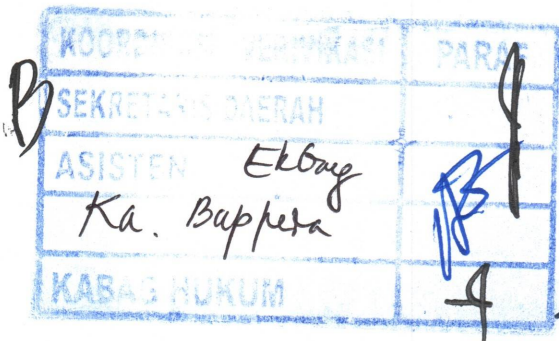 KOORDINASI VERIFIKASI PARAF
SEKRETARIS DAERAH
ASISTEN Ekbang
Ka. Bappeda
KABAG HUKUM